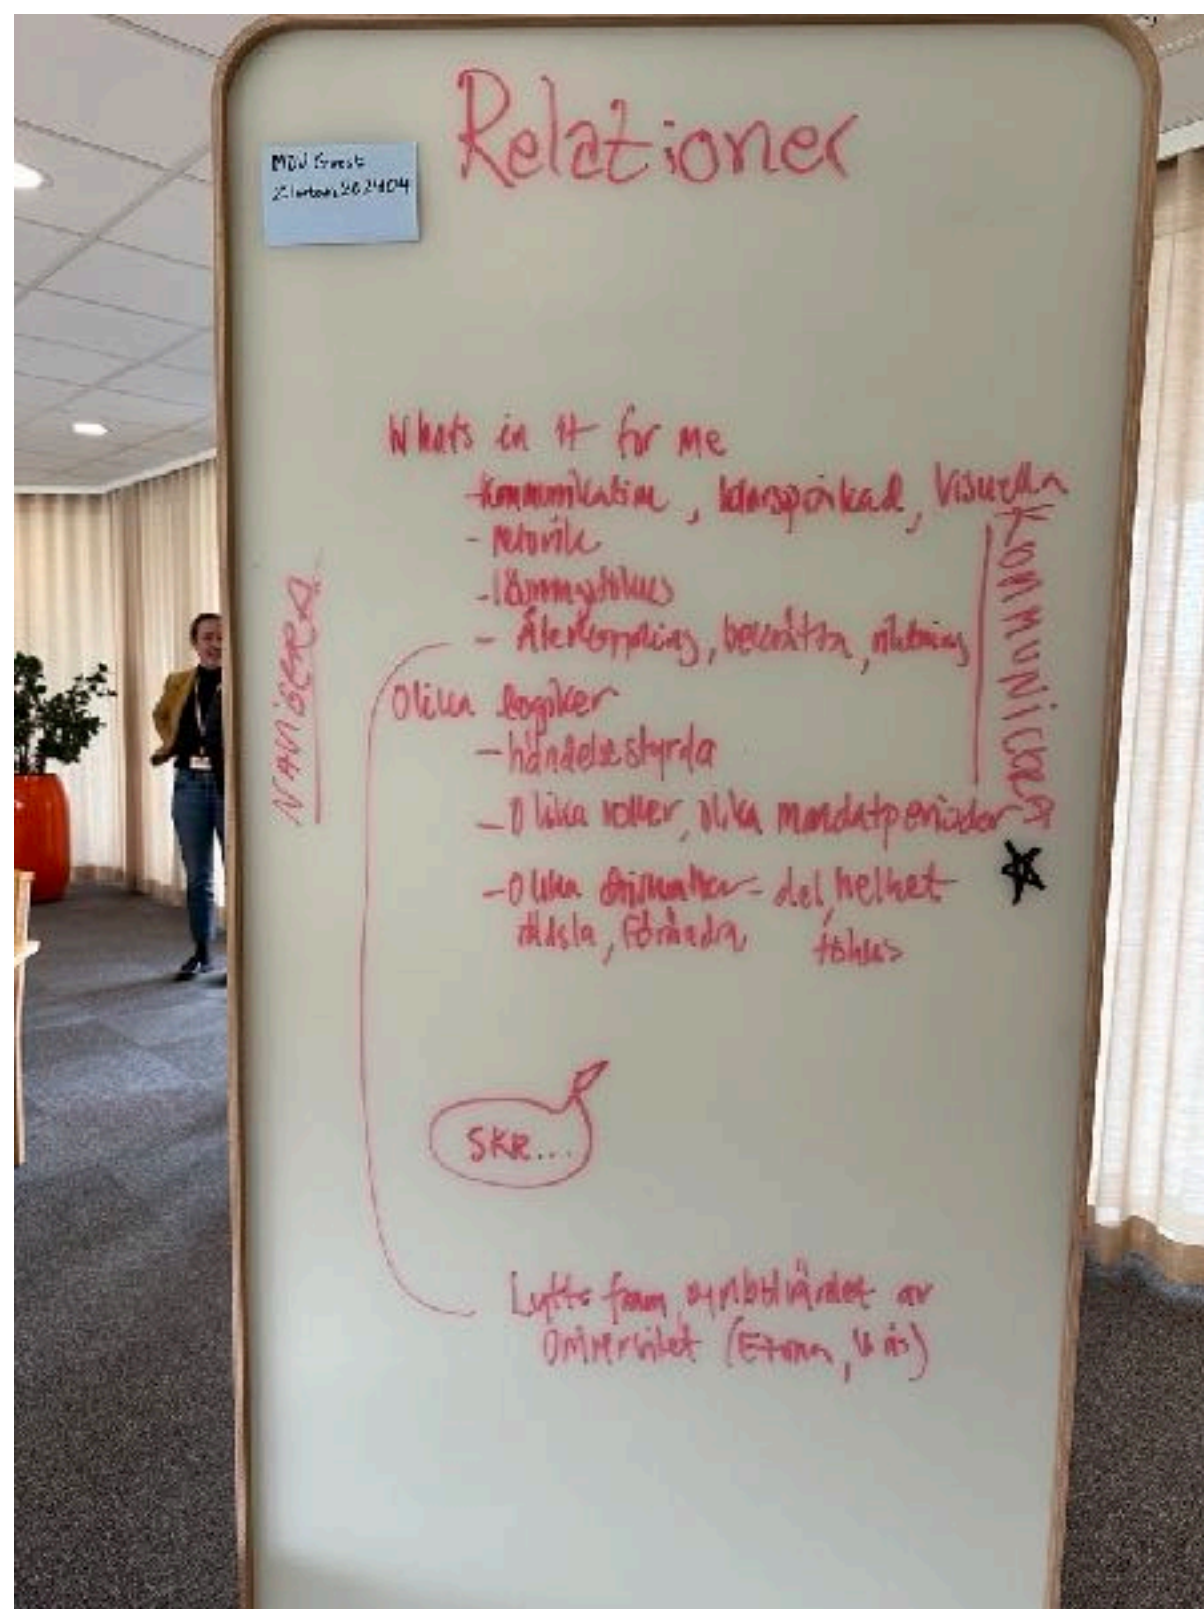 Relationer
MDU Guest
What's in it for me
-kommunikation, klarspråkad, visuella
- retorik
- Återkoppling, berätta, riktning
Olika logiker
- händelsestyrda
- Olika roller, olika mandatperioder
- Olika - del, helhet
rädsla, förändra, fokus
NAVIGERA
KOMMUNICERA
SKR...
Lyfta fram symbolvärdet av
Universitet